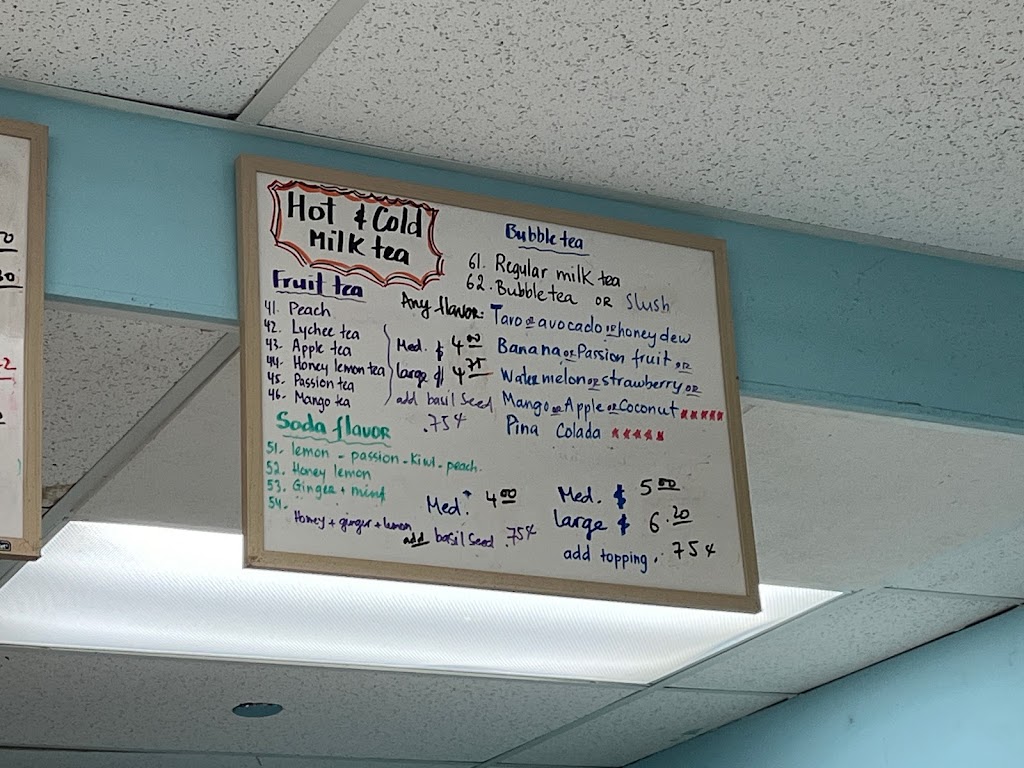 Hot & Cold
Milk tea
Fruit tea
41. Peach
42. Lychee tea
43. Apple tea
44. Honey lemon tea
45. Passion tea
46. Mango tea
Med. $ 4.00
large $ 4.75
add basil seed
.75¢
Soda flavor
51. lemon - passion - Kiwi - peach.
52. Honey lemon
53. Ginger + mint
54.
Honey + ginger + lemon
Med. 4.00
add basil seed .75¢
Bubble tea
61. Regular milk tea
62. Bubble tea OR Slush
Any flavor: Taro or avocado or honeydew
Banana or Passion fruit or
Watermelon or strawberry or
Mango or Apple or Coconut
Pina Colada
Med. $ 5.00
large $ 6.20
add topping. 75¢